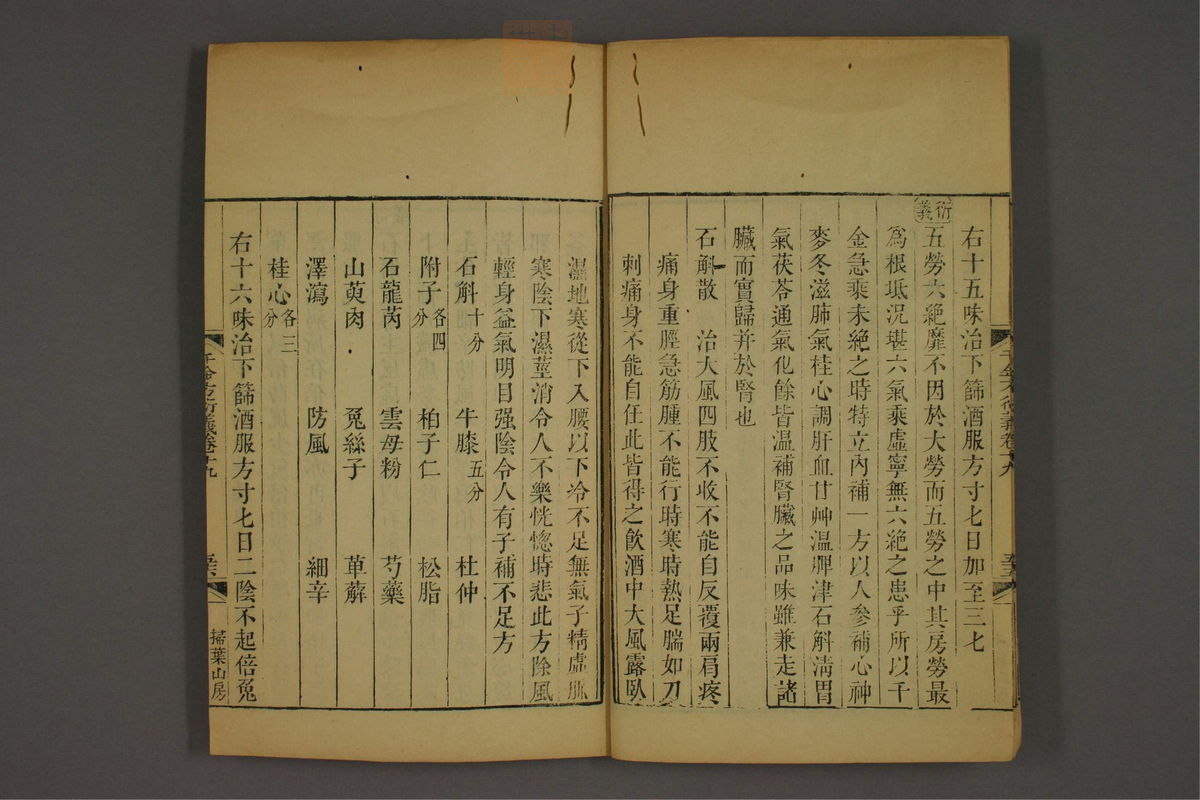 右十五味治下篩酒服方寸七日加至三七
衍義
五勞六絶靡不因於大勞而五勞之中其房勞最
爲根坻況堪六氣乘虛寧無六絶之患乎所以千
金急乘未絶之時特立內補一方以人參補心神
麥冬滋肺氣桂心調肝血甘艸溫脾津石斛淸胃
氣茯苓通氣化餘皆溫補腎臟之品味雖兼走諸
臟而實歸并於腎也
石斛散 治大風四肢不收不能自反覆兩肩疼
痛身重脛急筋腫不能行時寒時熱足腨如刀
刺痛身不能自任此皆得之飮酒中大風露臥
濕地寒從下入腰以下冷不足無氣子精虛脈
寒陰下濕莖消令人不樂恍惚時悲此方除風
輕身益氣明目强陰令人有子補不足方
石斛十分 牛膝五分 杜仲
附子各四分 柏子仁 松脂
石龍芮 雲母粉 芍藥
山萸肉 兎絲子 萆薢
澤瀉 防風 細辛
桂心各三分
右十六味治下篩酒服方寸七日二陰不起倍兎
千金方衍義卷十九
掃葉山房